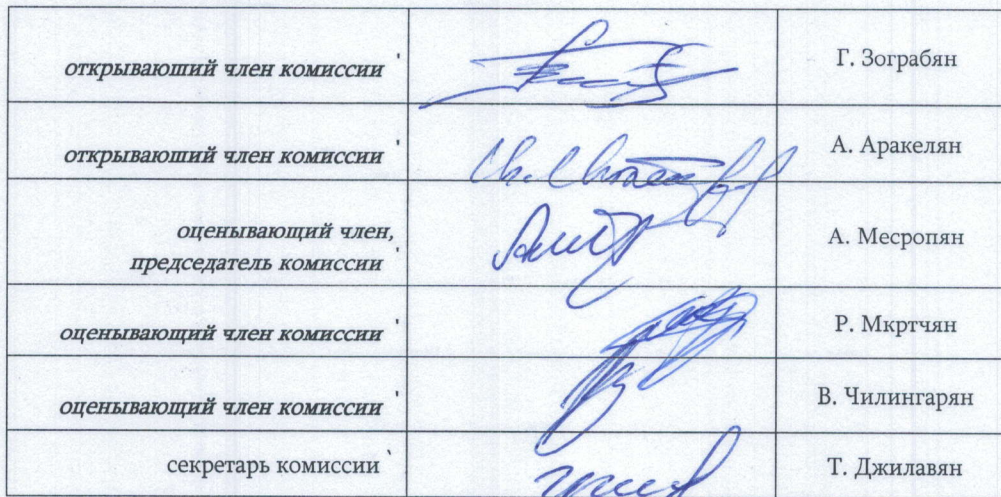 открываюший член комиссии ՝ Г. Зограбян
открываюший член комиссии ՝ А. Аракелян
оценывающий член,
председатель комиссии ՝ А. Месропян
оценывающий член комиссии ՝ Р. Мкртчян
оценывающий член комиссии ՝ В. Чилингарян
секретарь комиссии ՝ Т. Джилавян